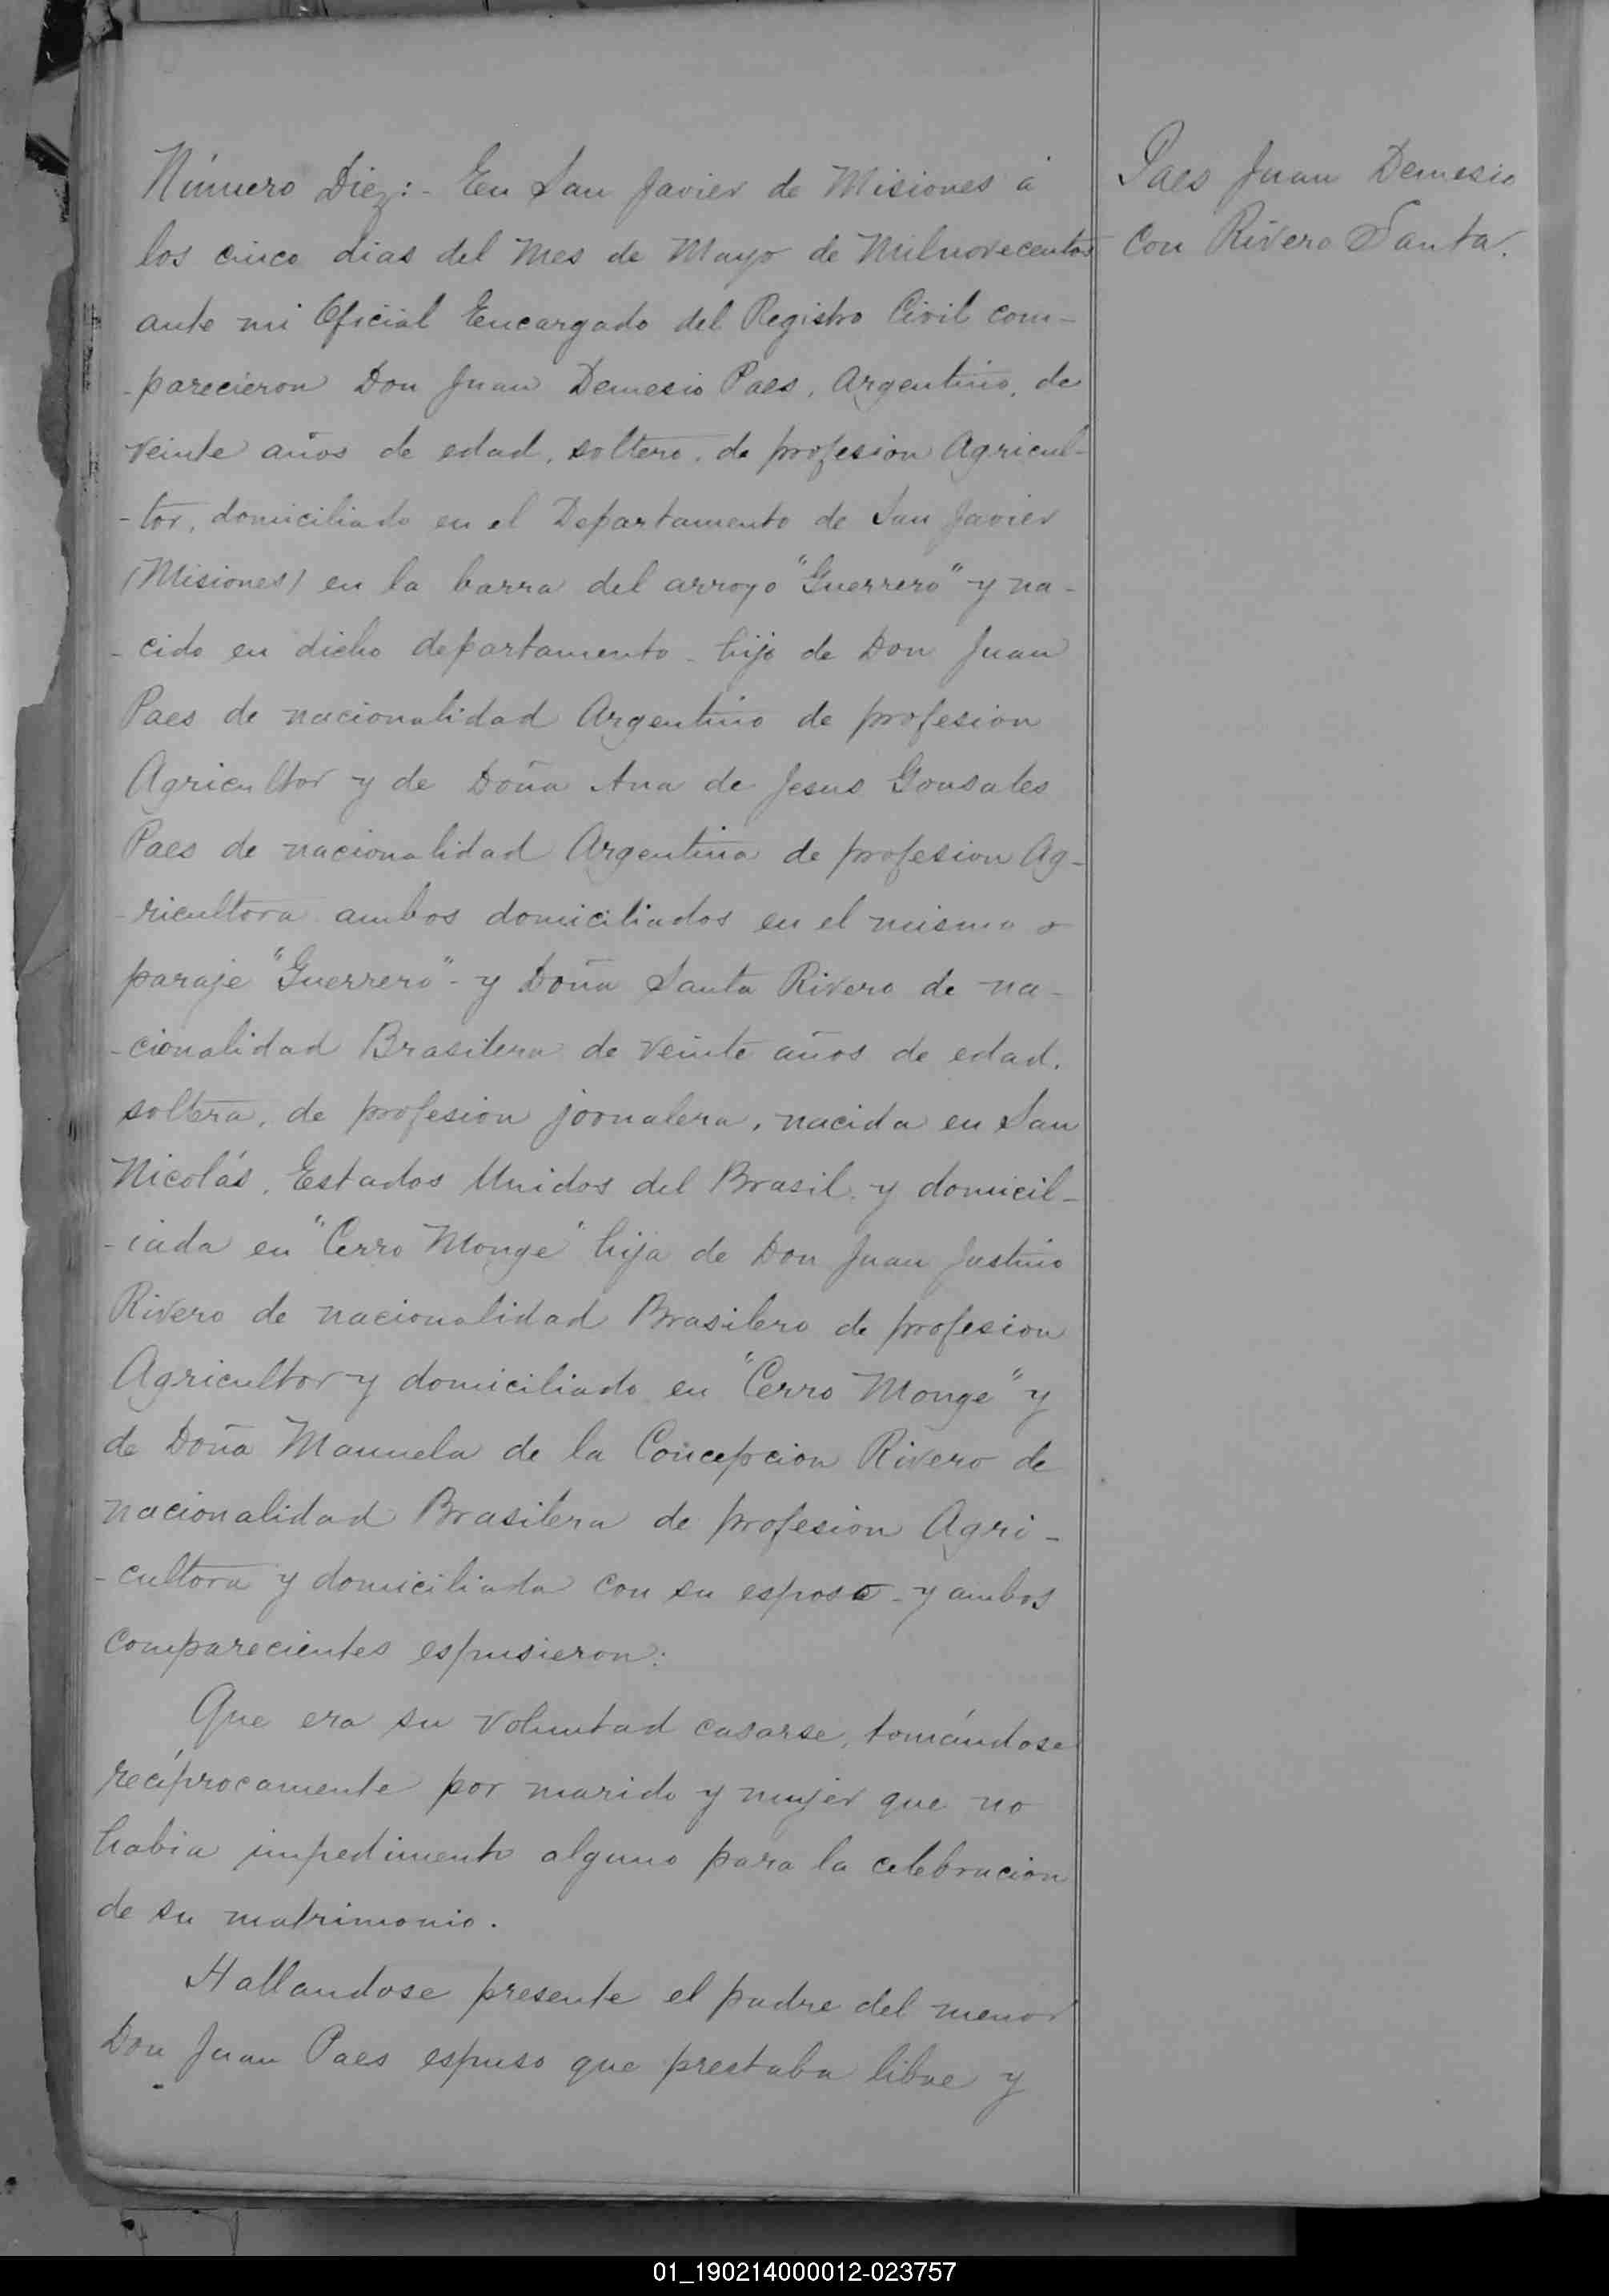 Número Diez:- En San Javier de Misiones á
los cinco dias del mes de Mayo de Milnovecentos
ante mi Oficial Encargado del Registro Civil com-
-parecieron Don Juan Demesio Paes, Argentino, de
veinte años de edad, soltero, de profesion Agricul-
-tor, domiciliado en el Departamento de San Javier
(Misiones) en la barra del arroyo "Guerrero" y na-
-cido en dicho departamento - hijo de Don Juan
Paes de nacionalidad Argentino de profesion
Agricultor y de Doña Ana de Jesus Gonsales
Paes de nacionalidad Argentina de profesion Ag-
-ricultora ambos domiciliados en el mismo
paraje "Guerrero" - y Doña Santa Rivero de na-
-cionalidad Brasilera de veinte años de edad.
soltera, de profesion jornalera, nacida en San
Nicolás, Estados Unidos del Brasil y domicil-
-iada en "Cerro Monge" hija de Don Juan Justino
Rivero de nacionalidad Brasilero de profesion
Agricultor y domiciliado en "Cerro Monge" y
de Doña Manuela de la Concepcion Rivero de
nacionalidad Brasilera de profesion Agri-
-cultora y domiciliada con su esposo - y ambos
comparecientes espusieron:
Que era su voluntad casarse, tomándose
recíprocamente por marido y mujer que no
habia impedimento alguno para la celebracion
de su matrimonio.
Hallandose presente el padre del menor
Don Juan Paes espuso que prestaba libre y
Paes Juan Demesio
con Rivero Santa.
01_190214000012-023757